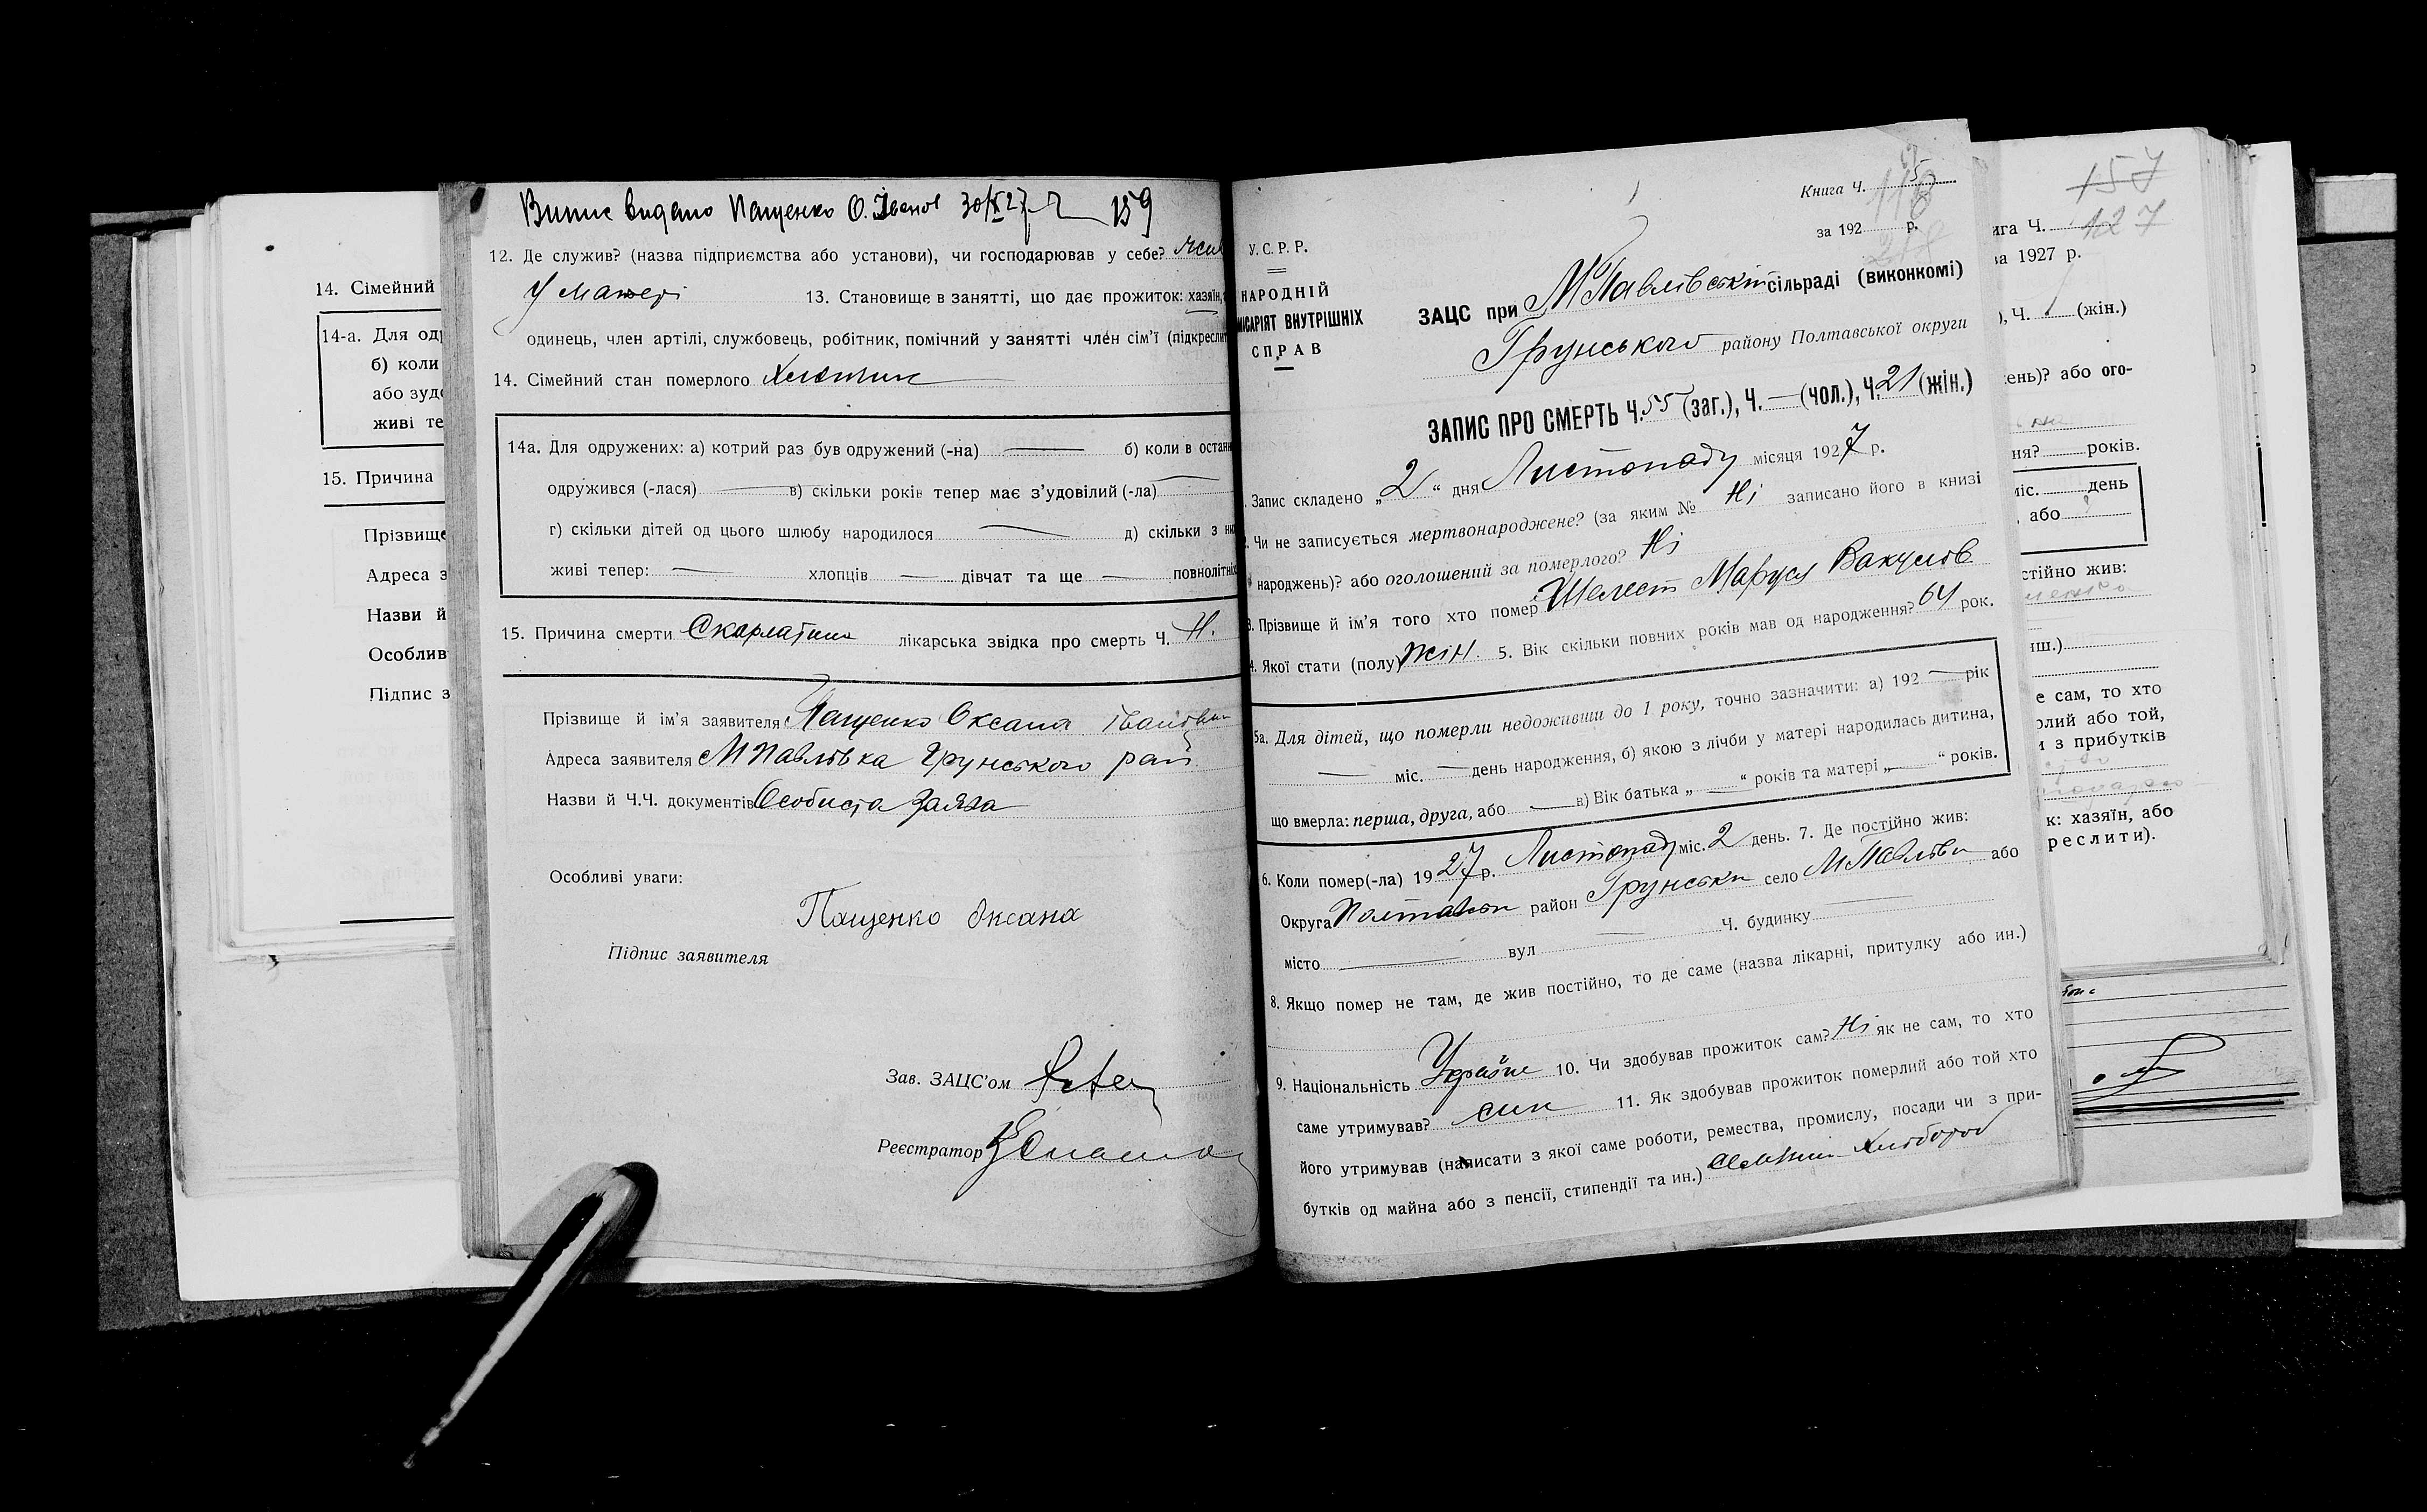 14. Сімейний
14-а. Для од
б) коли
або зуд
живі те
15. Причина
Прізвище
Адреса з
Назви й
Особлив
Підпис з
Випис видано Пащенко О. Іванов 30/X 27 р. 159
12. Де служив? (назва підприємства або установи), чи господарював у себе? жив
у матері 13. Становище в занятті, що дає прожиток: хазяїн,
одинець, член артілі, службовець, робітник, помічний у занятті член сім’ї (підкреслит
14. Сімейний стан померлого
14а. Для одружених: а) котрий раз був одружений (-на) — б) коли в останн
одружився (-лася) — в) скільки років тепер має з’удовілий (-ла) —
г) скільки дітей од цього шлюбу народилося — д) скільки з ни
живі тепер: — хлопців — дівчат та ще — повнолітніх
15. Причина смерти Скарлатина лікарська звідка про смерть Ч. Н.
Прізвище й ім’я заявителя Пащенко Оксана Іванівна
Адреса заявителя МПавлівка Грунського рай
Назви й Ч.Ч. документів Особиста Заява
Особливі уваги:
Пащенко Оксана
Підпис заявителя
Зав. ЗАЦС’ом
Реєстратор
Книга Ч. 5
118
за 192 р.
218
У.С.Р.Р.
НАРОДНІЙ
МІСАРІЯТ ВНУТРІШНІХ
СПРАВ
ЗАЦС при МПавлівській сільраді (виконкомі)
Грунського району Полтавської округи
ЗАПИС ПРО СМЕРТЬ Ч. 55 (заг.), Ч. — (чол.), Ч. 21 (жін.)
. Запис складено „ 2 “ дня Листопаду місяця 1927 р.
. Чи не записується мертвонароджене? (за яким № Ні записано його в книзі
народжень)? або оголошений за померлого? Ні
3. Прізвище й ім’я того хто помер Шелест Маруся Вакулов
4. Якої стати (полу) жін. 5. Вік скільки повних років мав од народження? 64 рок.
5а. Для дітей, що померли недоживши до 1 року, точно зазначити: а) 192 — рік
— міс. — день народження, б) якою з лічби у матері народилась дитина,
що вмерла: перша, друга, або — в) Вік батька „ — “ років та матері „ — “ років.
6. Коли помер(-ла) 1927 р. Листопаду міс. 2 день. 7. Де постійно жив:
Округа Полтавськ район Грунськи село МПавлівка або
місто — вул — Ч. будинку —
8. Якщо помер не там, де жив постійно, то де саме (назва лікарні, притулку або ин.)
9. Національність Україн 10. Чи здобував прожиток сам? Ні як не сам, то хто
саме утримував? син 11. Як здобував прожиток померлий або той хто
його утримував (написати з якої саме роботи, ремества, промислу, посади чи з при-
бутків од майна або з пенсії, стипендії та ин.) Хлібороб
157
ига Ч. 127
за 1927 р.
), Ч. (жін.)
ень)? або ого-
на
ня? років.
міс. день
, або
стійно жив:
иш.)
е сам, то хто
рлий або той,
и з прибутків
к: хазяїн, або
реслити).